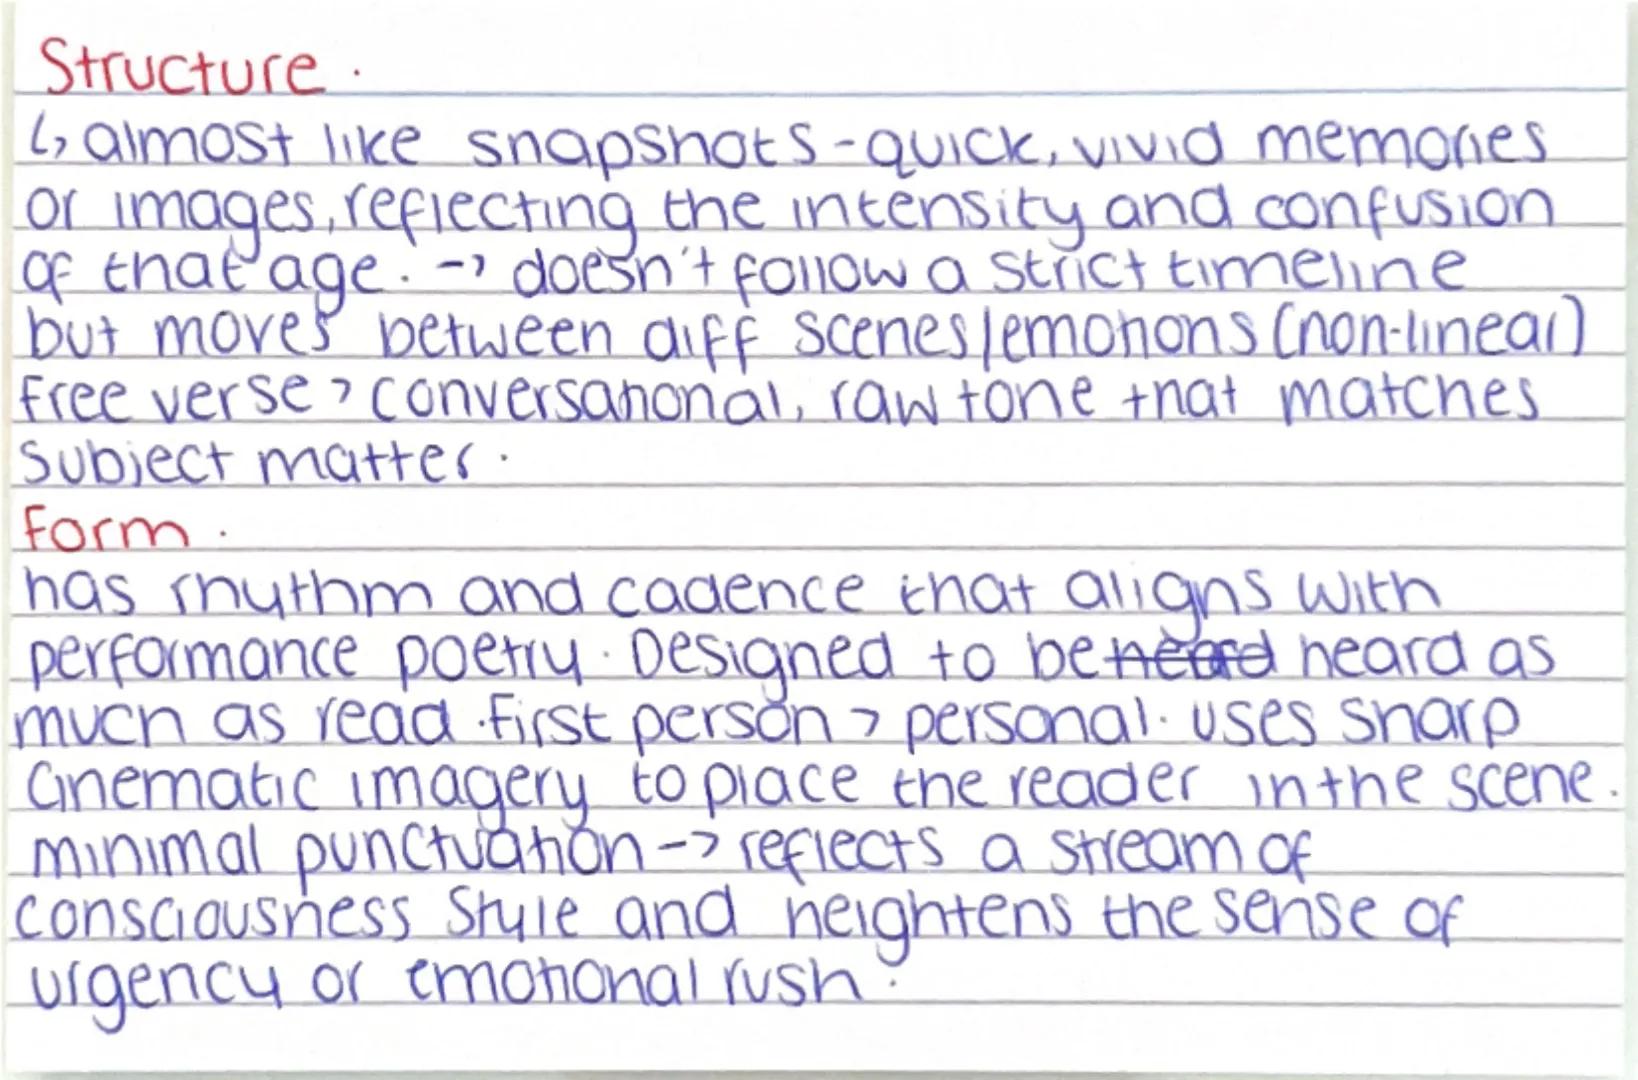 Structure.
↳ almost like snapshots - quick, vivid memories
or images, reflecting the intensity and confusion
of that age. -> doesn't follow a strict timeline
but moves between diff scenes/emotions (non-linear)
free verse > conversational, raw tone that matches
subject matter.
Form.
has rhythm and cadence that aligns with
performance poetry. Designed to be heard heard as
much as read. First person > personal. uses sharp
cinematic imagery to place the reader in the scene.
minimal punctuation -> reflects a stream of
consciousness style and heightens the sense of
urgency or emotional rush.